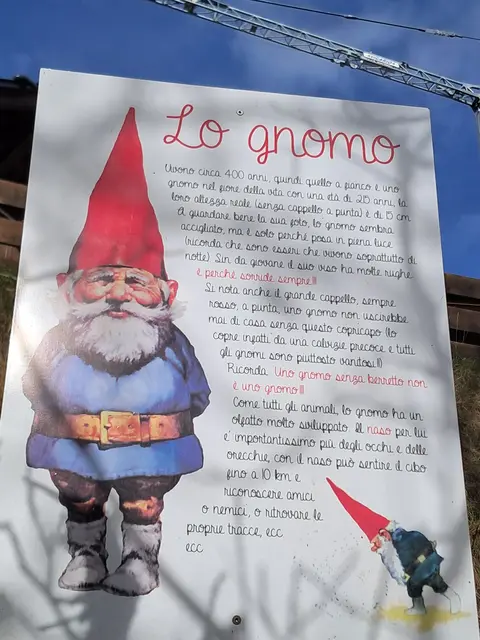 Lo gnomo
Vivono circa 400 anni, quindi quello a fianco è uno
gnomo nel fiore della vita con una età di 215 anni, la
loro altezza reale (senza cappello a punta) è di 15 cm
A guardare bene la sua foto, lo gnomo sembra
accigliato, ma è solo perchè posa in piena luce
(ricorda che sono esseri che vivono soprattutto di
notte) Sin da giovane il suo viso ha molte rughe:
è perchè sorride sempre!!!
Si nota anche il grande cappello, sempre
rosso, a punta, uno gnomo non uscirebbe
mai di casa senza questo copricapo (lo
copre infatti da una calvizie precoce e tutti
gli gnomi sono piuttosto vanitosi!!)
Ricorda: Uno gnomo senza berretto non
è uno gnomo!!!
Come tutti gli animali, lo gnomo ha un
olfatto molto sviluppato. Il naso per lui
e' importantissimo più degli occhi e delle
orecchie, con il naso può sentire il cibo
fino a 10 km e
riconoscere amici
o nemici, o ritrovare le
proprie tracce, ecc
ecc